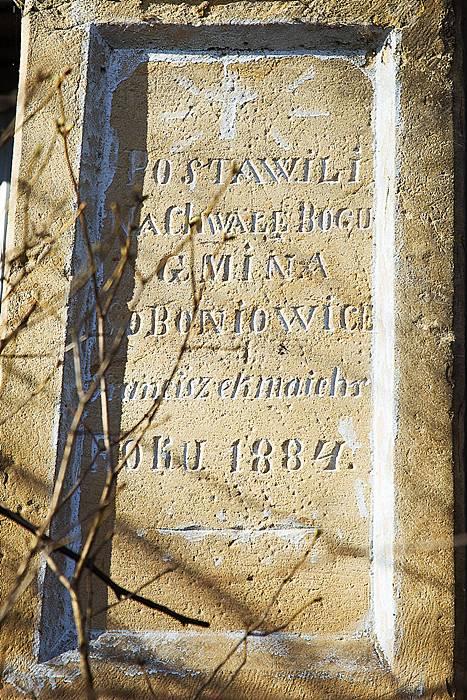 POSTAWILI
NA CHWAŁĘ BOGU
GMINA
ŁOBONIOWICE
i
Franciszekmaichr
ROKU 1884.